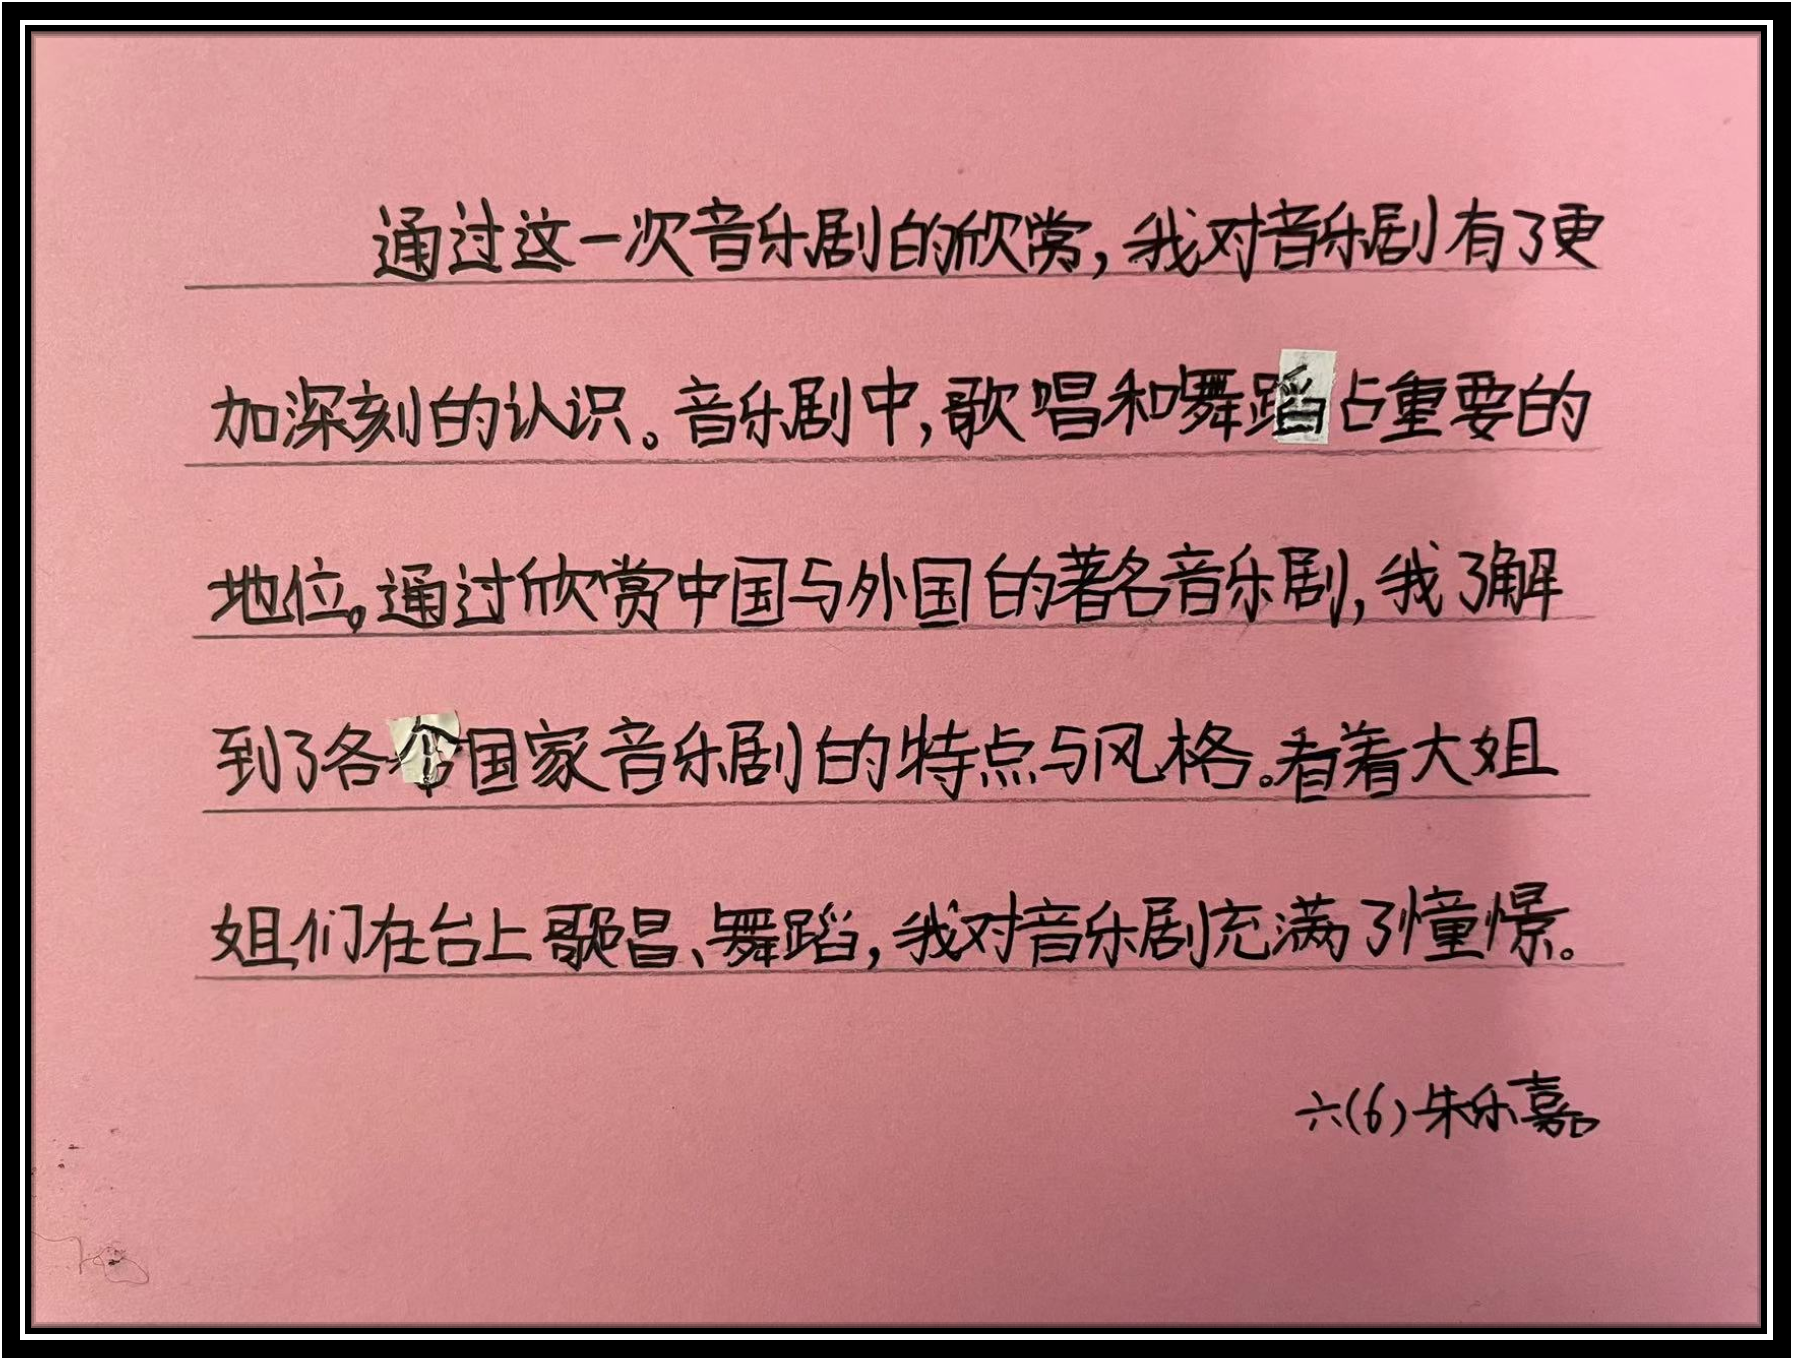 通过这一次音乐剧的欣赏，我对音乐剧有了更
加深刻的认识。音乐剧中，歌唱和舞蹈占重要的
地位。通过欣赏中国与外国的著名音乐剧，我了解
到了各个国家音乐剧的特点与风格。看着大姐
姐们在台上歌唱、舞蹈，我对音乐剧充满了憧憬。
六(6)朱乐嘉